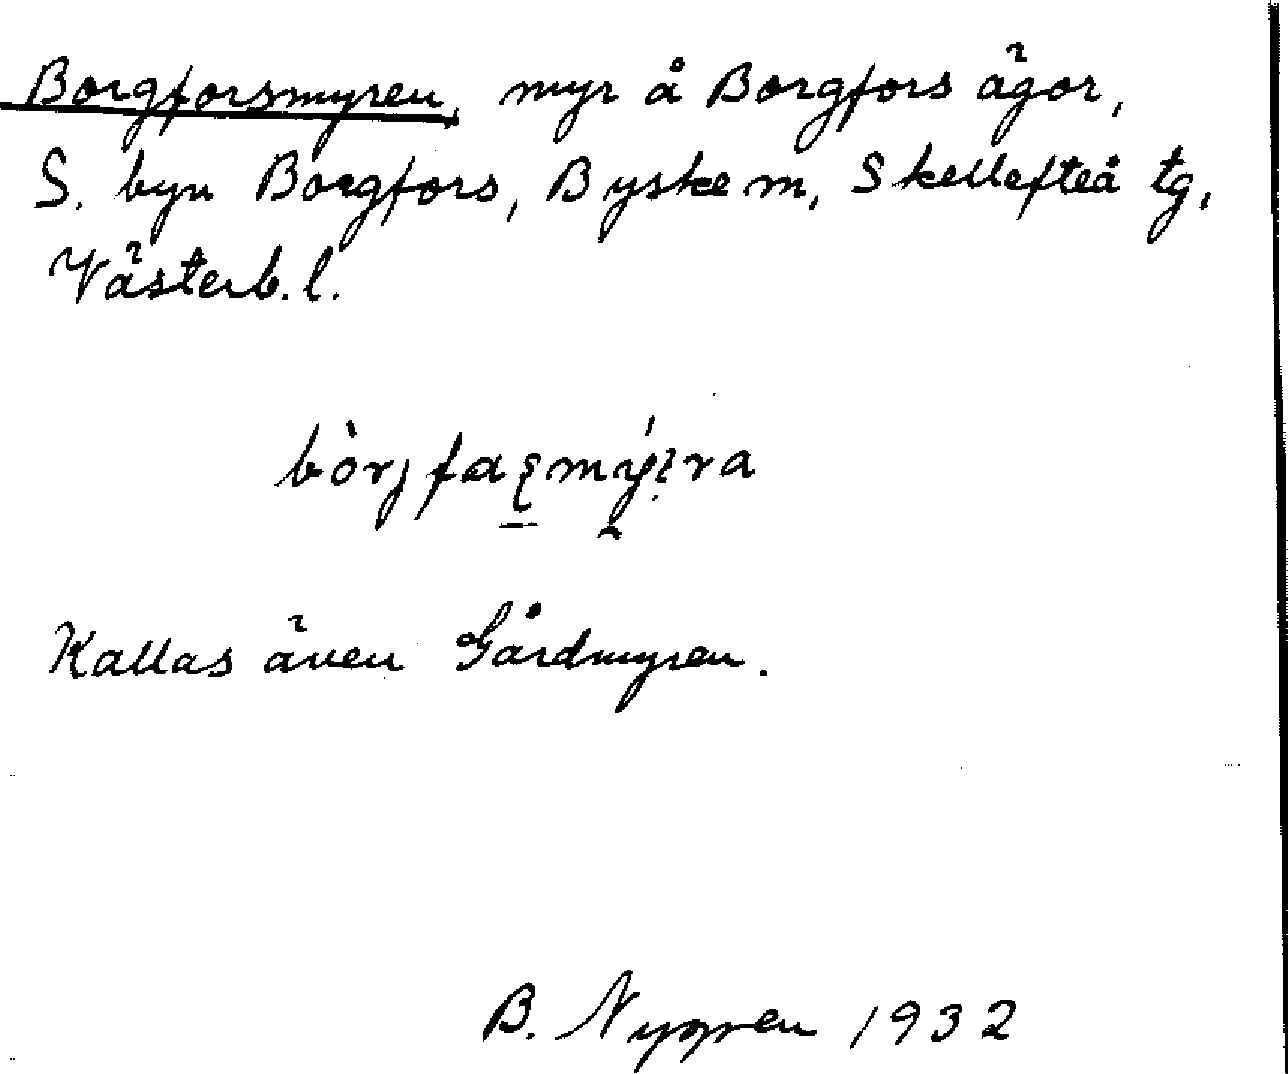 Borgforsmyren, myr å Borgfors ägor,
S. byn Borgfors, Byske m, Skellefteå tg,
Västerb. l.
Kallas även Gårdmyren.
B. Nygren 1932